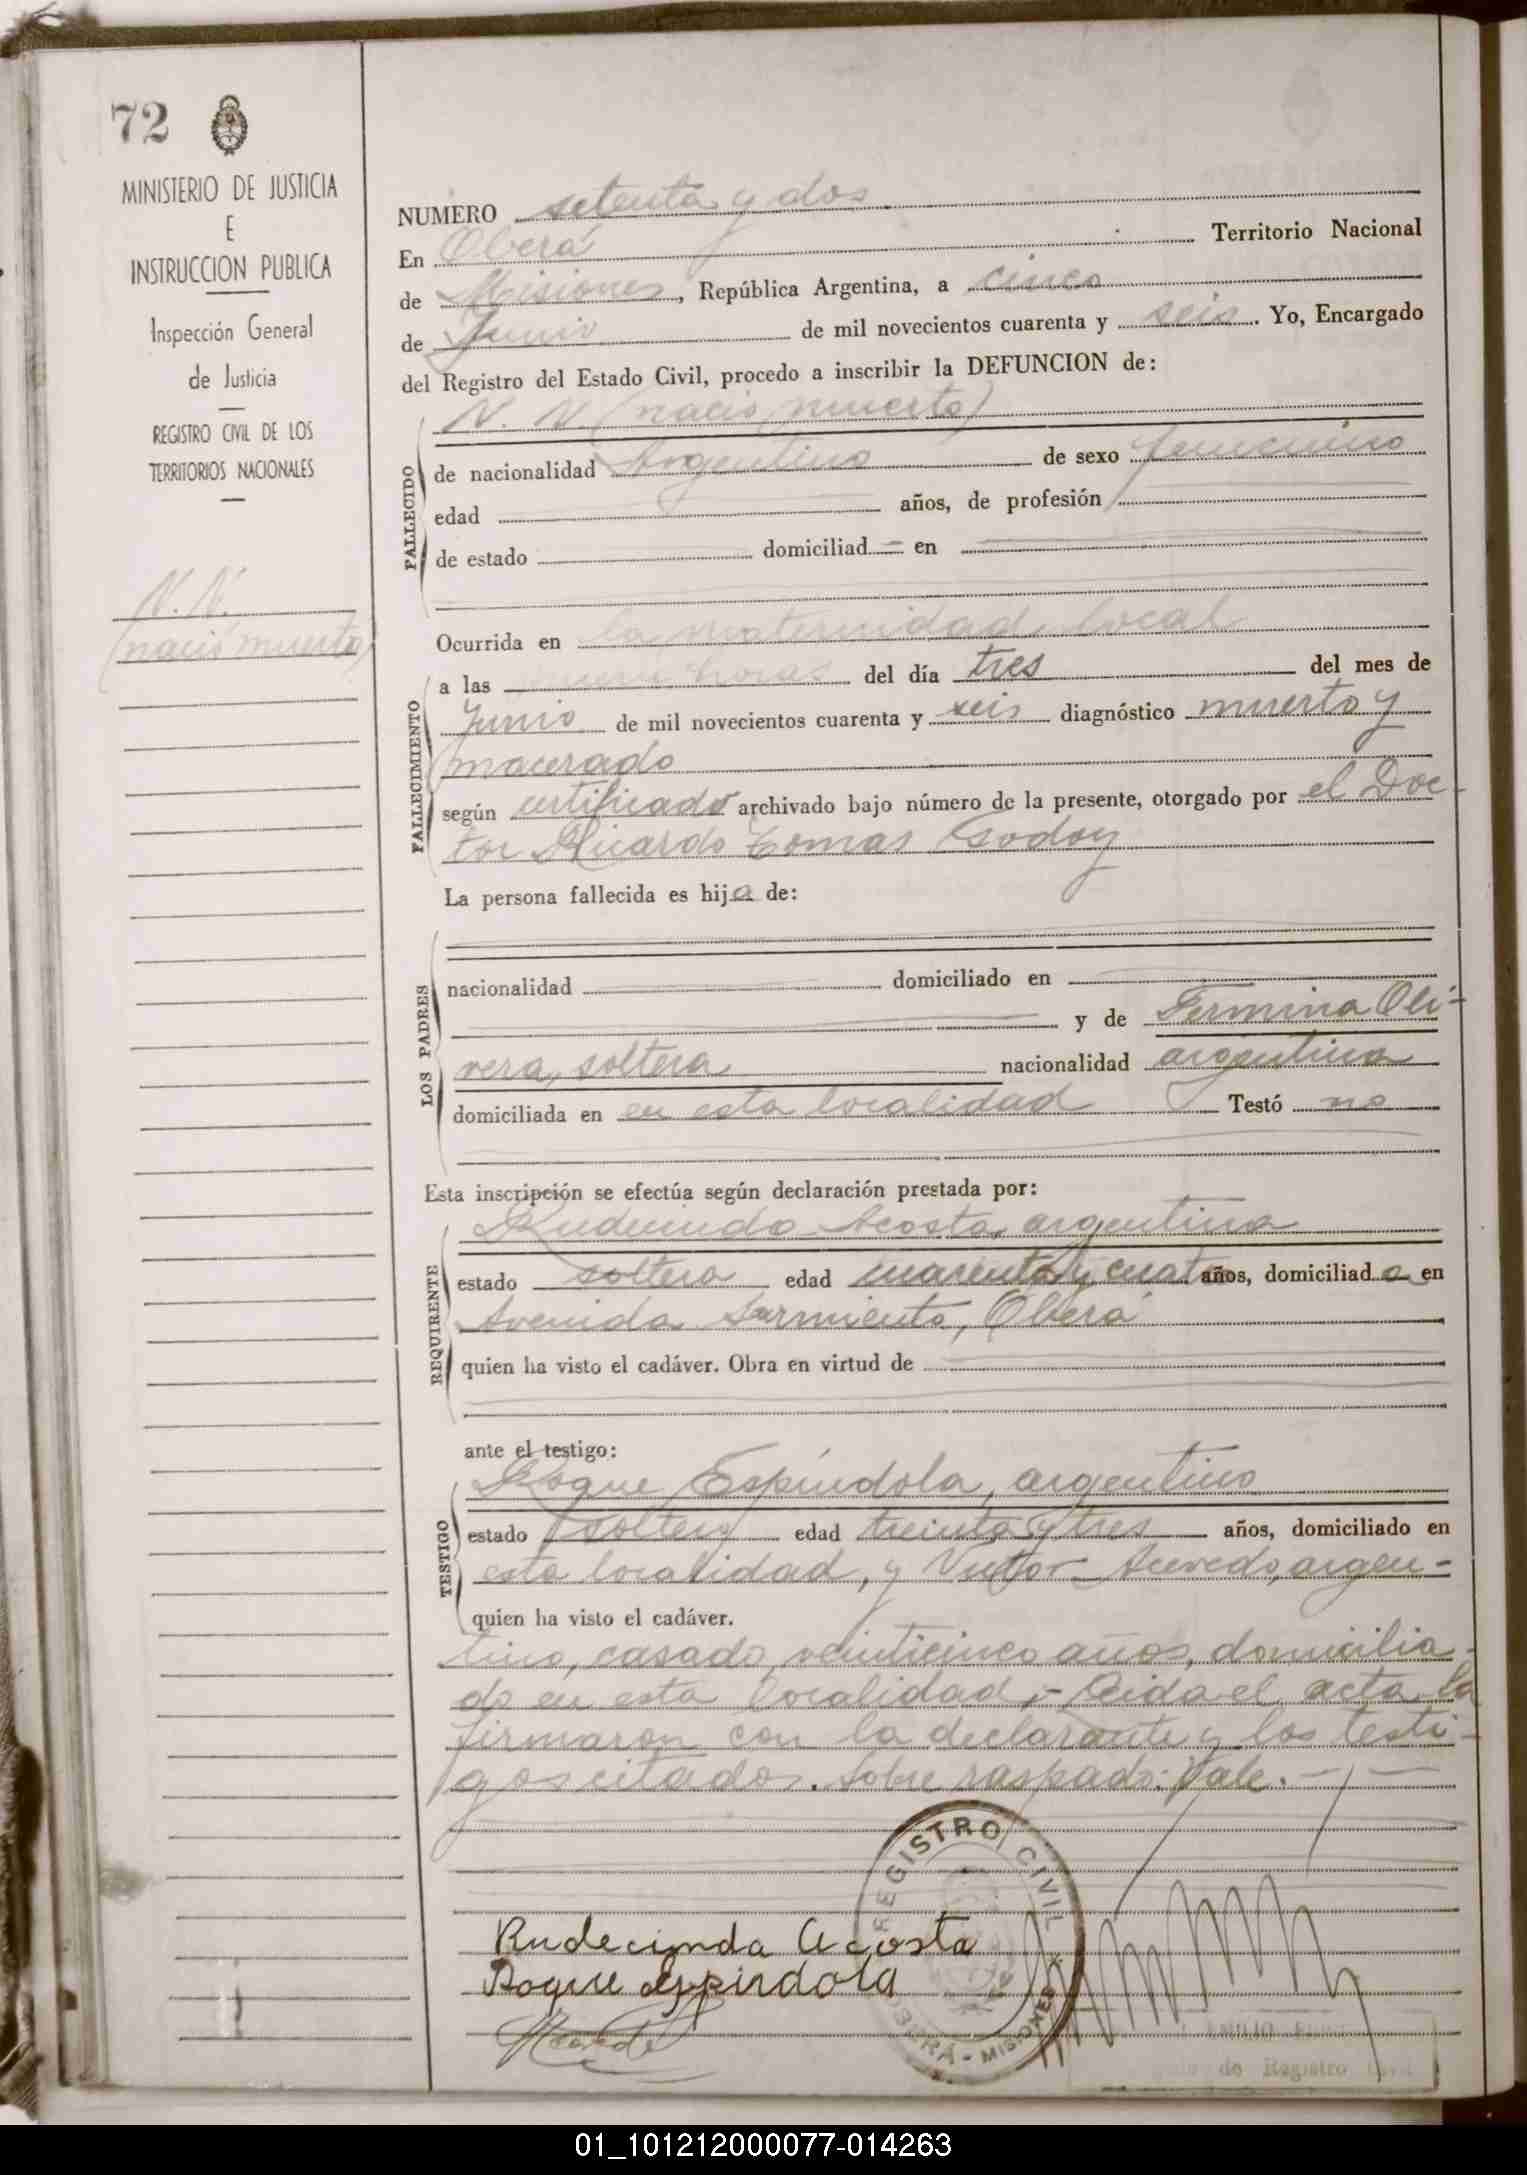 72
MINISTERIO DE JUSTICIA
E
INSTRUCCION PUBLICA
Inspección General
de Justicia
REGISTRO CIVIL DE LOS
TERRITORIOS NACIONALES
N. N.
(nació muerta)
NUMERO setenta y dos
En Oberá Territorio Nacional
de Misiones, República Argentina, a cinco
de Junio de mil novecientos cuarenta y seis. Yo, Encargado
del Registro del Estado Civil, procedo a inscribir la DEFUNCION de:
N. N. (nació muerta)
FALLECIDO
de nacionalidad Argentina de sexo femenino
edad años, de profesión
de estado domiciliad en
Ocurrida en la maternidad local
FALLECIMIENTO
a las horas del día tres del mes de
Junio de mil novecientos cuarenta y seis diagnóstico muerto y
macerado
según certificado archivado bajo número de la presente, otorgado por el Doc-
tor Ricardo Tomas Godoy
La persona fallecida es hija de:
LOS PADRES
nacionalidad domiciliado en
y de Fermina Oli-
vera, soltera nacionalidad argentina
domiciliada en en esta localidad Testó no
Esta inscripción se efectúa según declaración prestada por:
REQUIRENTE
Rudecinda Acosta, argentina
estado soltera edad cuarenta y cuatro años, domiciliada en
Avenida Sarmiento, Oberá
quien ha visto el cadáver. Obra en virtud de
ante el testigo:
TESTIGO
Roque Espíndola, argentino
estado soltero edad treinta y tres años, domiciliado en
esta localidad, y Victor Acevedo, argen-
quien ha visto el cadáver.
tino, casado, veinticinco años, domicilia-
do en esta localidad.- Leida el acta la
firmaron con la declarante y los testi-
gos citados. Sobre raspado: Vale.
Rudecinda Acosta
Roque Espindola
REGISTRO CIVIL
OBERÁ - MISIONES
EMILIO
de Registro Civil
01_101212000077-014263